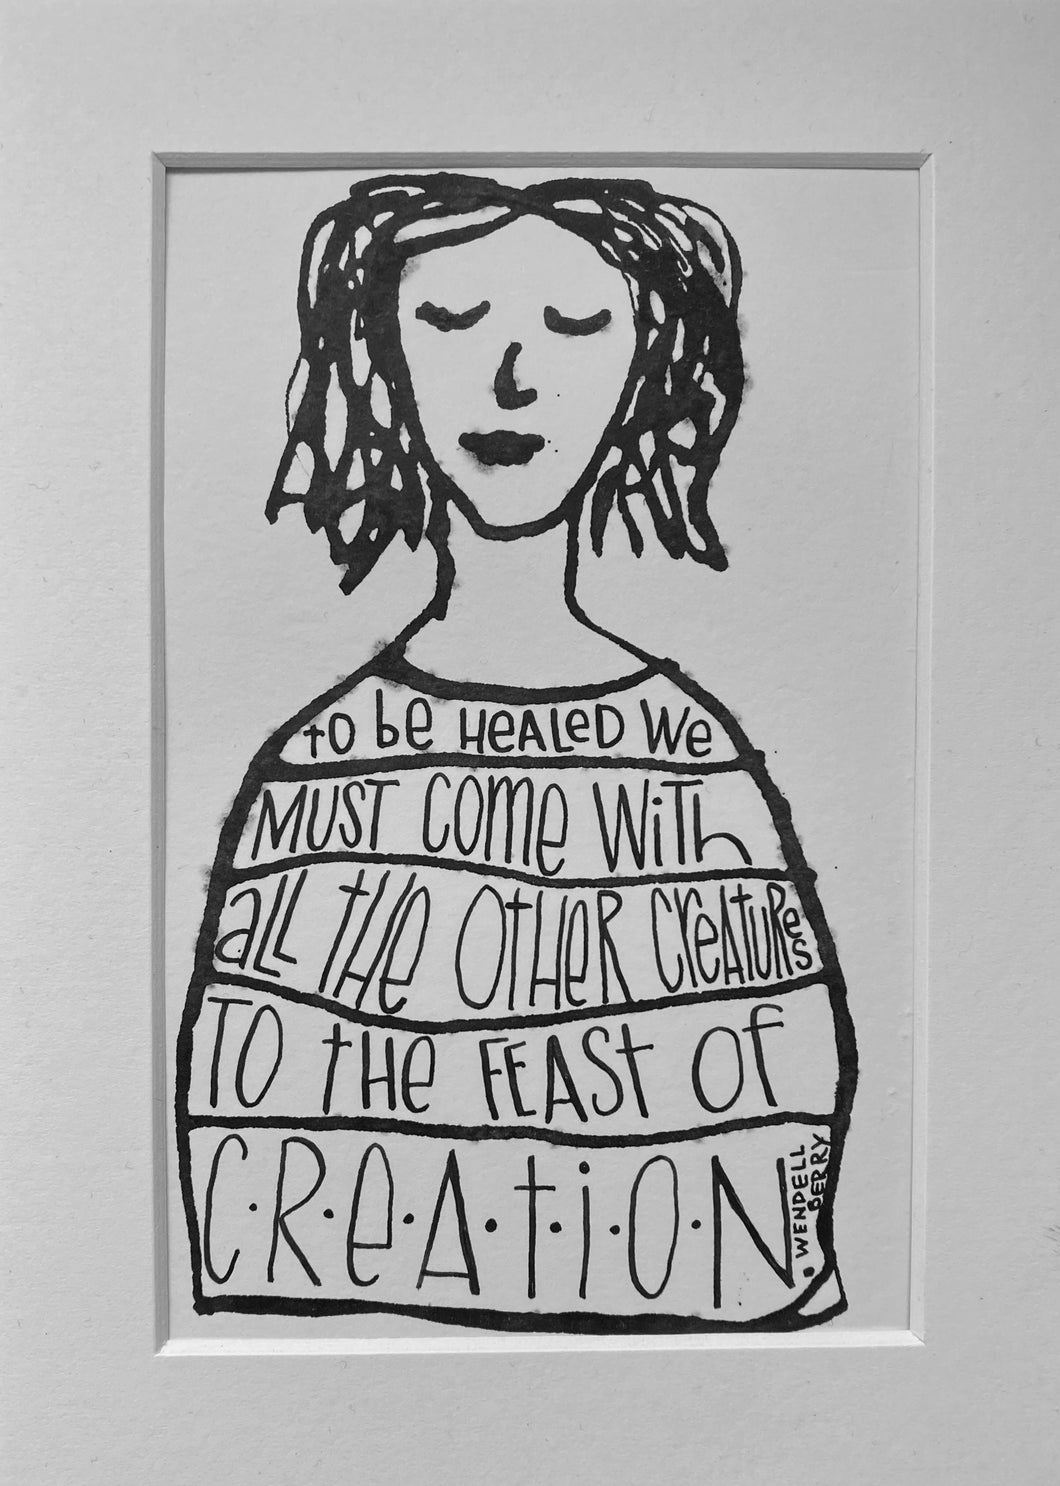 to be HEALeD We
MUST COme WiTh
aLL tHe OtHeR CreAtuRes
TO tHe FEASt Of
C·R·e·A·t·i·O·N
·WENDELL
BERRY